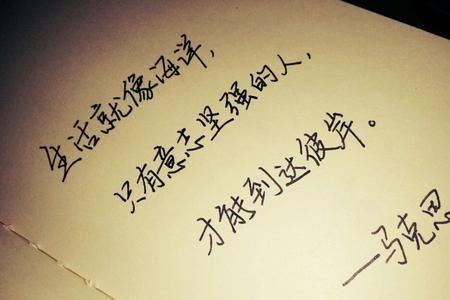 生活就像海洋，
只有意志坚强的人，
才能到达彼岸。
——马克思